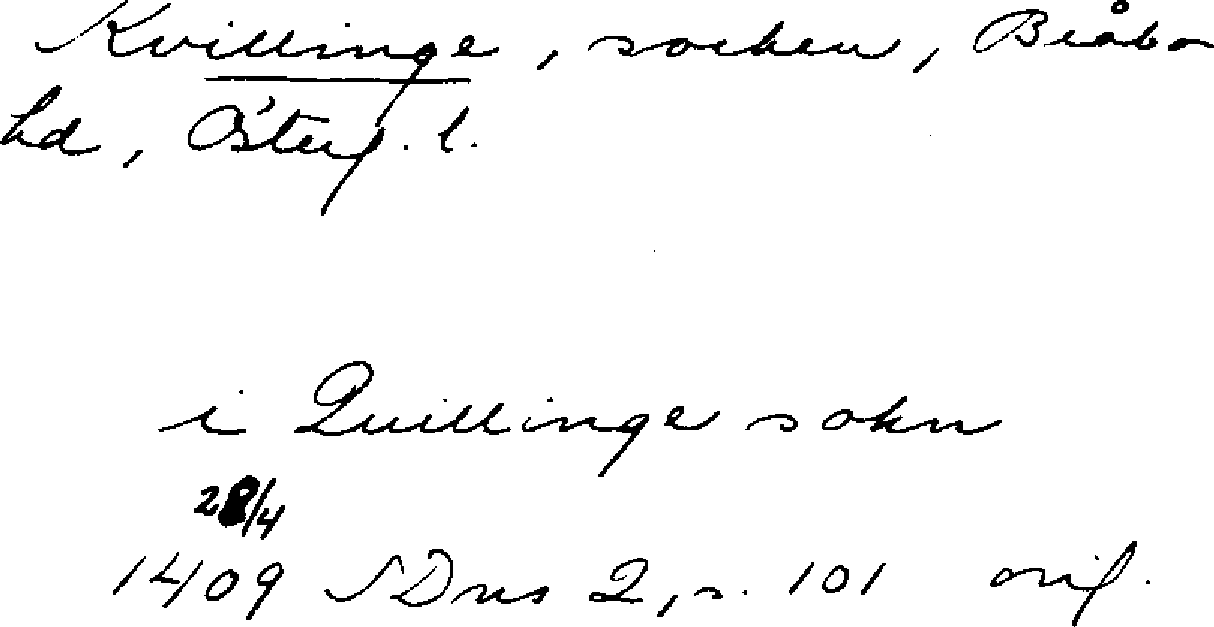 Kvillinge, socken, Bråbo
hd, Österg. l.
i Quillinge sokn
28/4
1409 SDns 2, s. 101 orig.